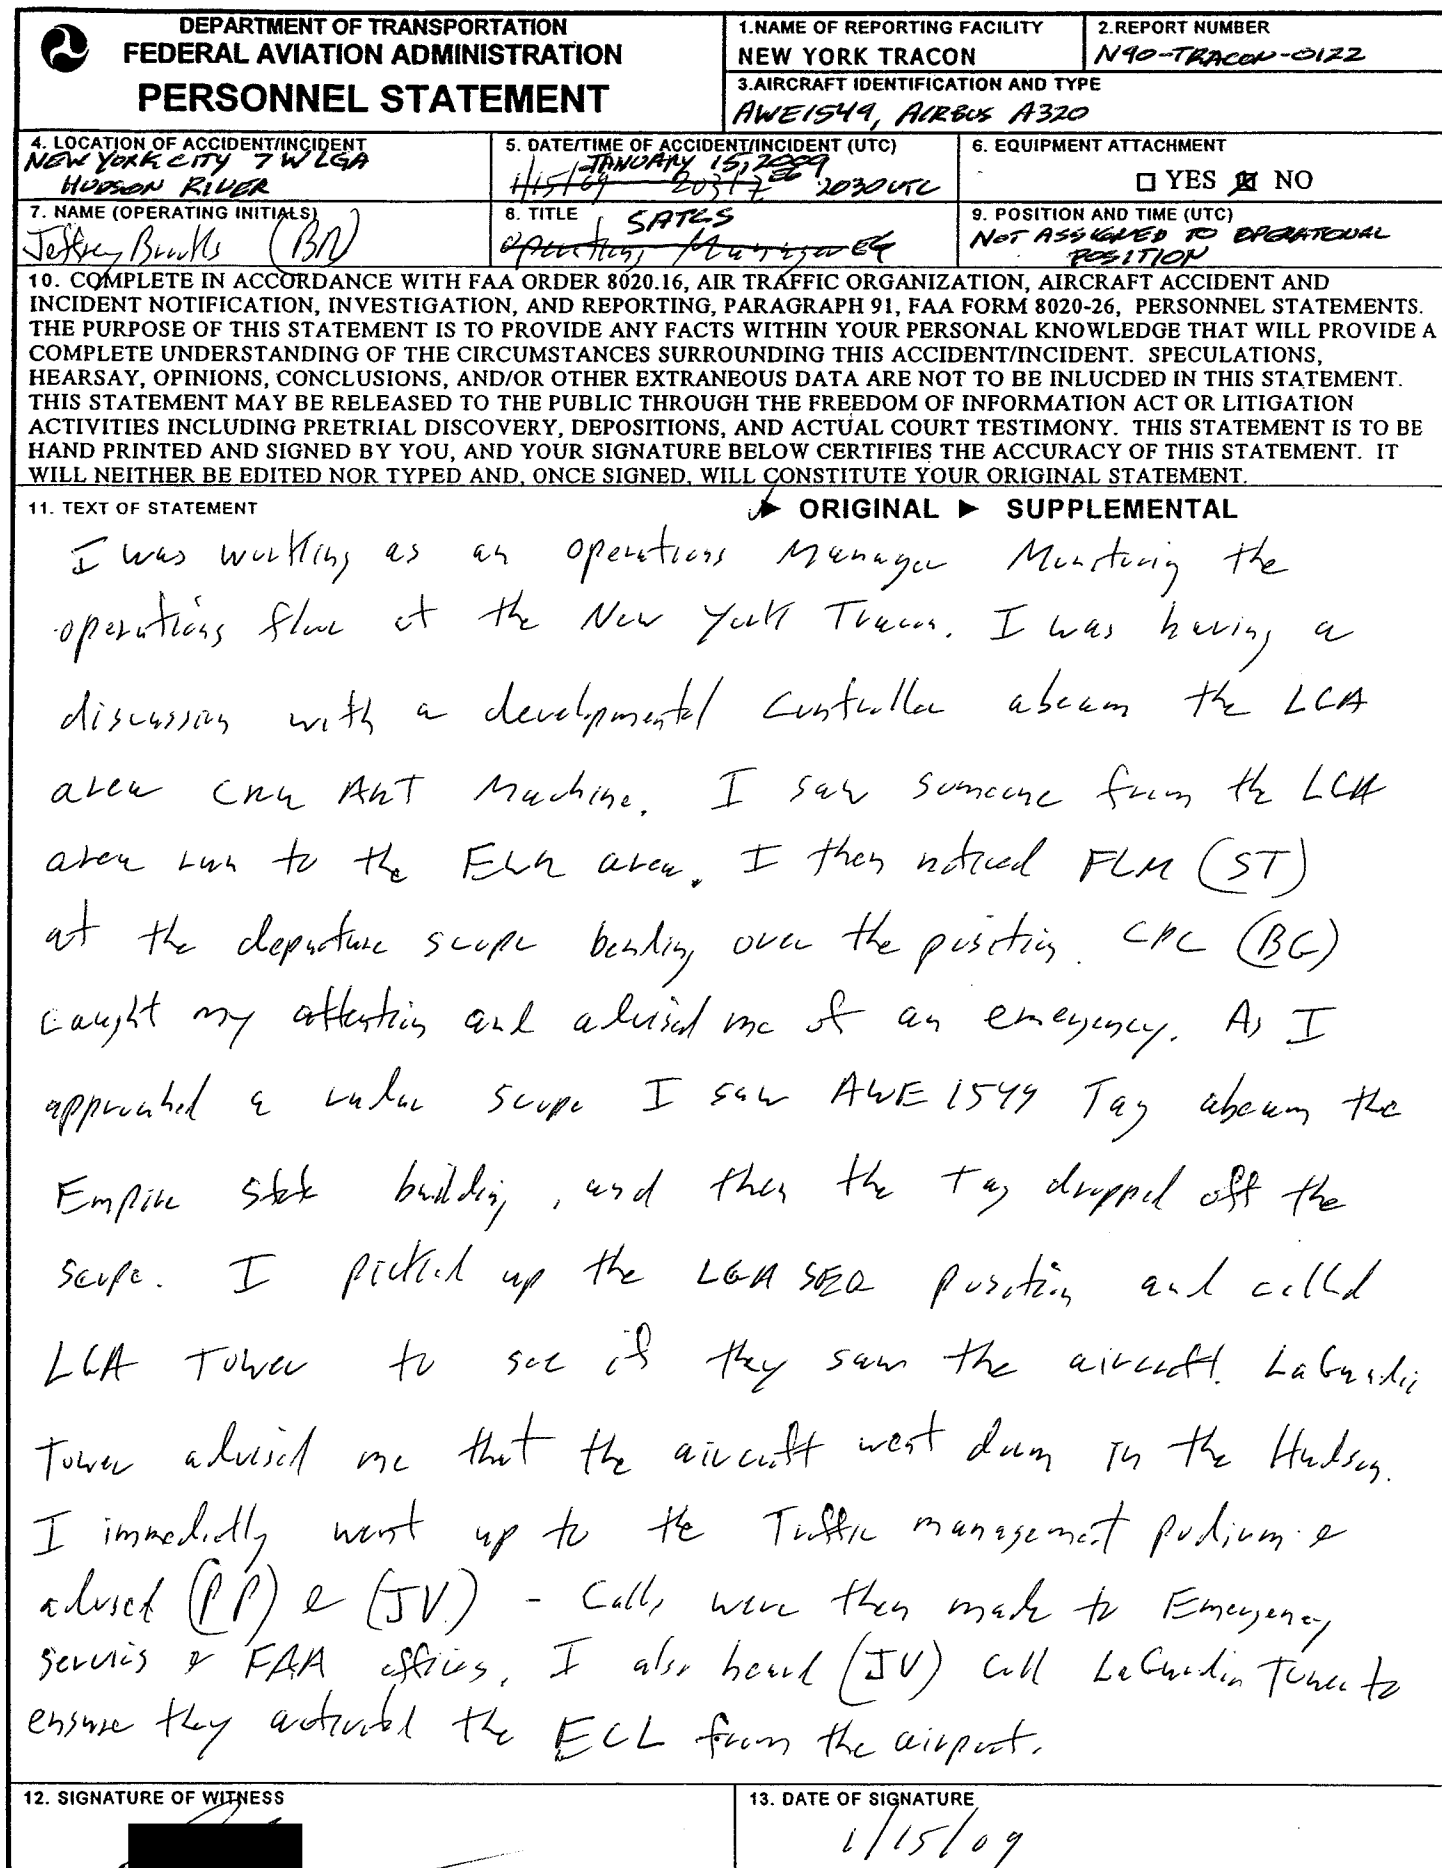 DEPARTMENT OF TRANSPORTATION
FEDERAL AVIATION ADMINISTRATION
PERSONNEL STATEMENT
1.NAME OF REPORTING FACILITY
NEW YORK TRACON
2.REPORT NUMBER
N90-TRACON-0122
3.AIRCRAFT IDENTIFICATION AND TYPE
AWE1549, AIRBUS A320
4. LOCATION OF ACCIDENT/INCIDENT
NEW YORK CITY 7 W LGA
HUDSON RIVER
5. DATE/TIME OF ACCIDENT/INCIDENT (UTC)
JANUARY 15, 2009
1/15/09 2031Z EG 2030 UTC
6. EQUIPMENT ATTACHMENT
YES NO
7. NAME (OPERATING INITIALS)
Jeffrey (BN)
8. TITLE
SATCS
Operations Manager EG
9. POSITION AND TIME (UTC)
NOT ASSIGNED TO OPERATIONAL
POSITION
10. COMPLETE IN ACCORDANCE WITH FAA ORDER 8020.16, AIR TRAFFIC ORGANIZATION, AIRCRAFT ACCIDENT AND
INCIDENT NOTIFICATION, INVESTIGATION, AND REPORTING, PARAGRAPH 91, FAA FORM 8020-26, PERSONNEL STATEMENTS.
THE PURPOSE OF THIS STATEMENT IS TO PROVIDE ANY FACTS WITHIN YOUR PERSONAL KNOWLEDGE THAT WILL PROVIDE A
COMPLETE UNDERSTANDING OF THE CIRCUMSTANCES SURROUNDING THIS ACCIDENT/INCIDENT. SPECULATIONS,
HEARSAY, OPINIONS, CONCLUSIONS, AND/OR OTHER EXTRANEOUS DATA ARE NOT TO BE INLUCDED IN THIS STATEMENT.
THIS STATEMENT MAY BE RELEASED TO THE PUBLIC THROUGH THE FREEDOM OF INFORMATION ACT OR LITIGATION
ACTIVITIES INCLUDING PRETRIAL DISCOVERY, DEPOSITIONS, AND ACTUAL COURT TESTIMONY. THIS STATEMENT IS TO BE
HAND PRINTED AND SIGNED BY YOU, AND YOUR SIGNATURE BELOW CERTIFIES THE ACCURACY OF THIS STATEMENT. IT
WILL NEITHER BE EDITED NOR TYPED AND, ONCE SIGNED, WILL CONSTITUTE YOUR ORIGINAL STATEMENT.
11. TEXT OF STATEMENT
► ORIGINAL ► SUPPLEMENTAL
I was working as an operations Manager Monitoring the
operations floor at the New York Tracon. I was having a
discussion with a developmental Controller abeam the LGA
area CRU ART Machine. I saw someone from the LGA
area run to the EWR area. I then noticed FLM (ST)
at the departure scope bending over the position. CPC (BG)
caught my attention and advised me of an emergency. As I
approached a radar scope I saw AWE 1549 Tag abeam the
Empire State building, and then the Tag dropped off the
scope. I picked up the LGA SEQ position and called
LGA Tower to see if they saw the aircraft. LaGuardia
Tower advised me that the aircraft went down in the Hudson.
I immediatly went up to the Traffic management podium &
advised (PP) & (JV) - Calls were then made to Emergency
services & FAA offices. I also heard (JV) call LaGuardia Tower to
ensure they activated the ECL from the airport.
12. SIGNATURE OF WITNESS
13. DATE OF SIGNATURE
1/15/09